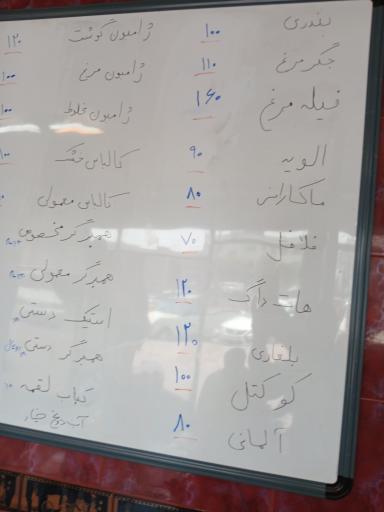 بندری ۱۰۰
جگر مرغ ۱۱۰
فیله مرغ ۱۶۰
الویه ۹۰
ماکارانی ۸۰
فلافل ۷۰
هات داگ ۱۲۰
بلغاری ۱۲۰
کوکتل ۱۰۰
آلمانی ۸۰
ژامبون گوشت ۱۲۰
ژامبون مرغ ۱۰۰
ژامبون مخلوط ۱۰۰
کالباس خشک
کالباس معمولی
همبرگر مخصوص
همبرگر معمولی
استیک دستی
همبرگر دستی
کباب لقمه